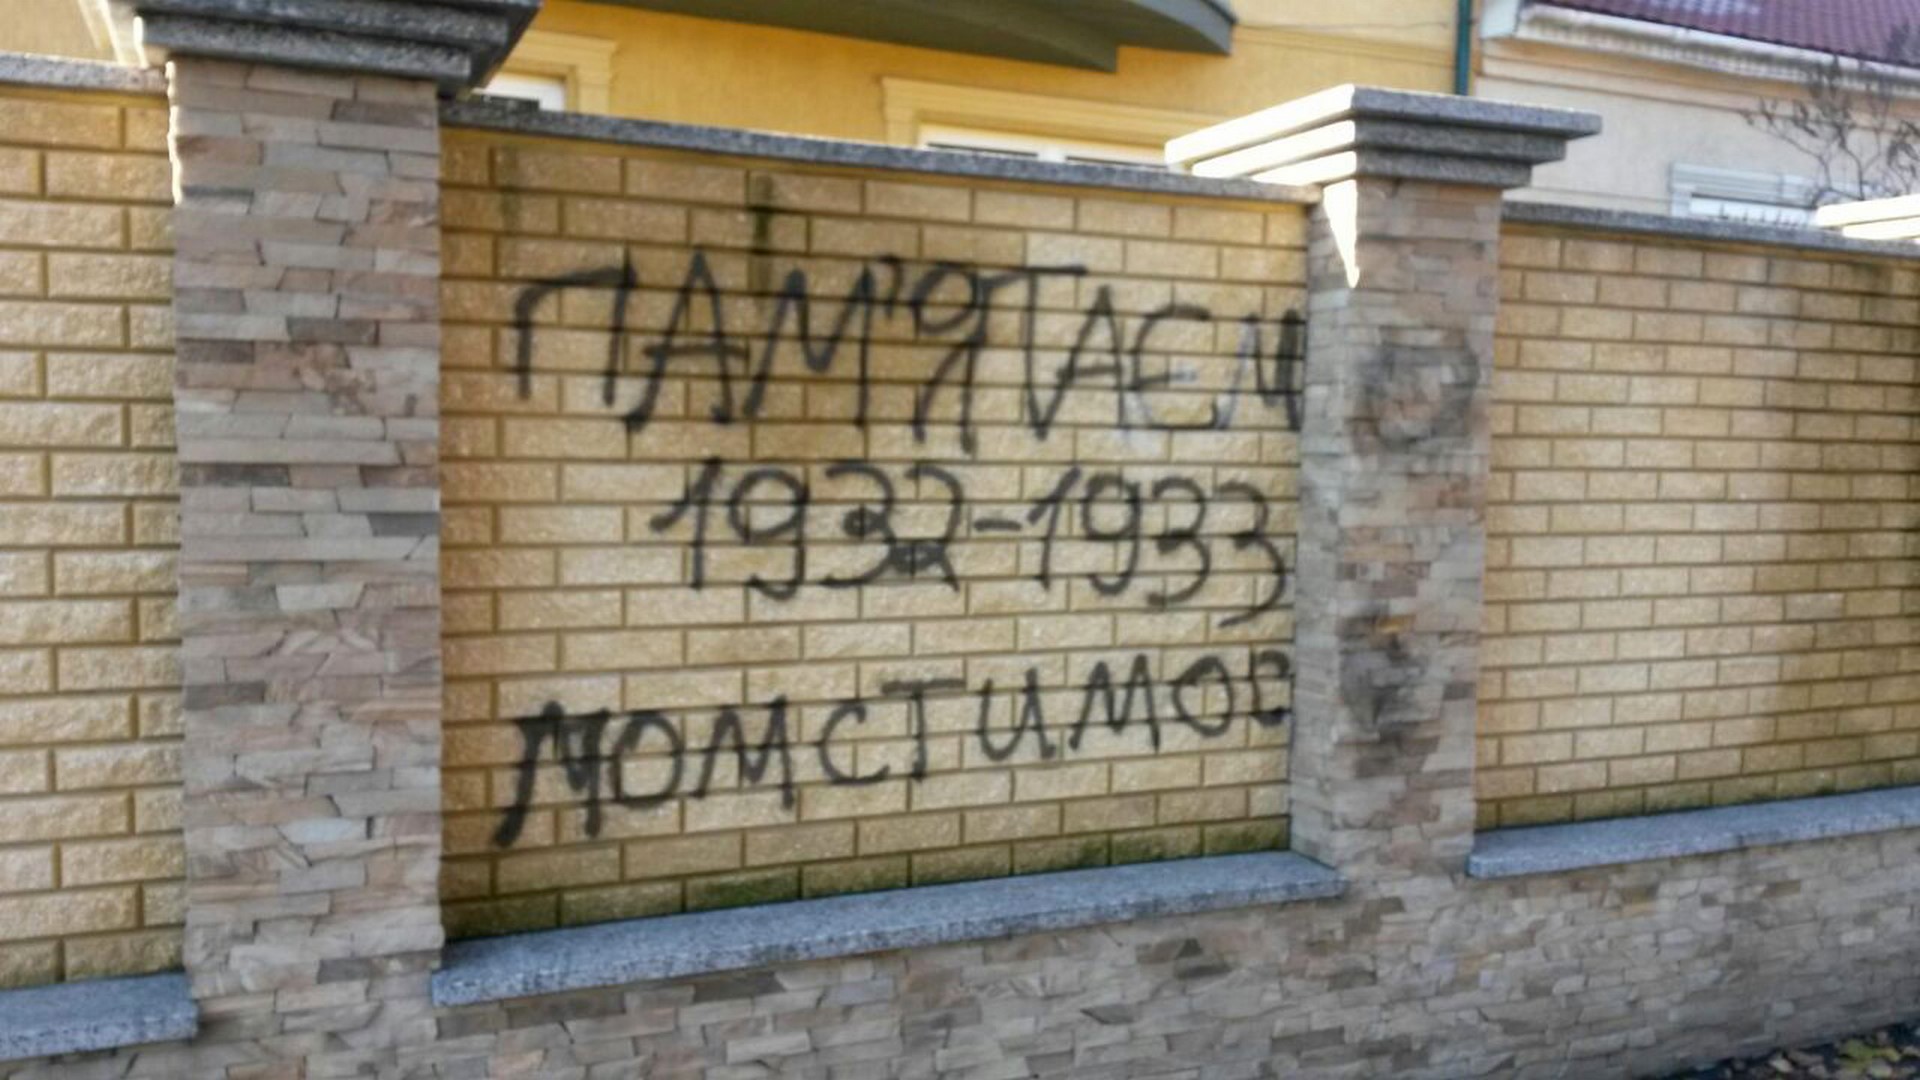 ПАМ'ЯТАЄМ
1932-1933
ПОМСТИМОС